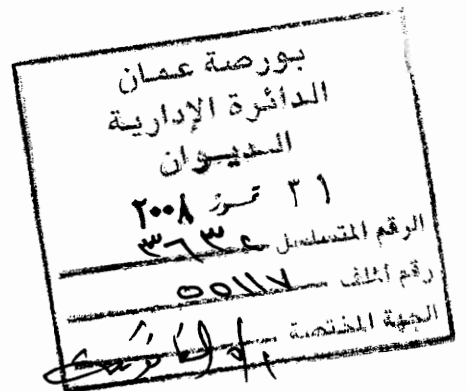 بورصة عمان
الدائرة الإدارية
الديوان
٣١ تموز ٢٠٠٨
الرقم المتسلسل ٣٦٣٤
رقم الملف ٥٥١١٧
الجهة المختصة